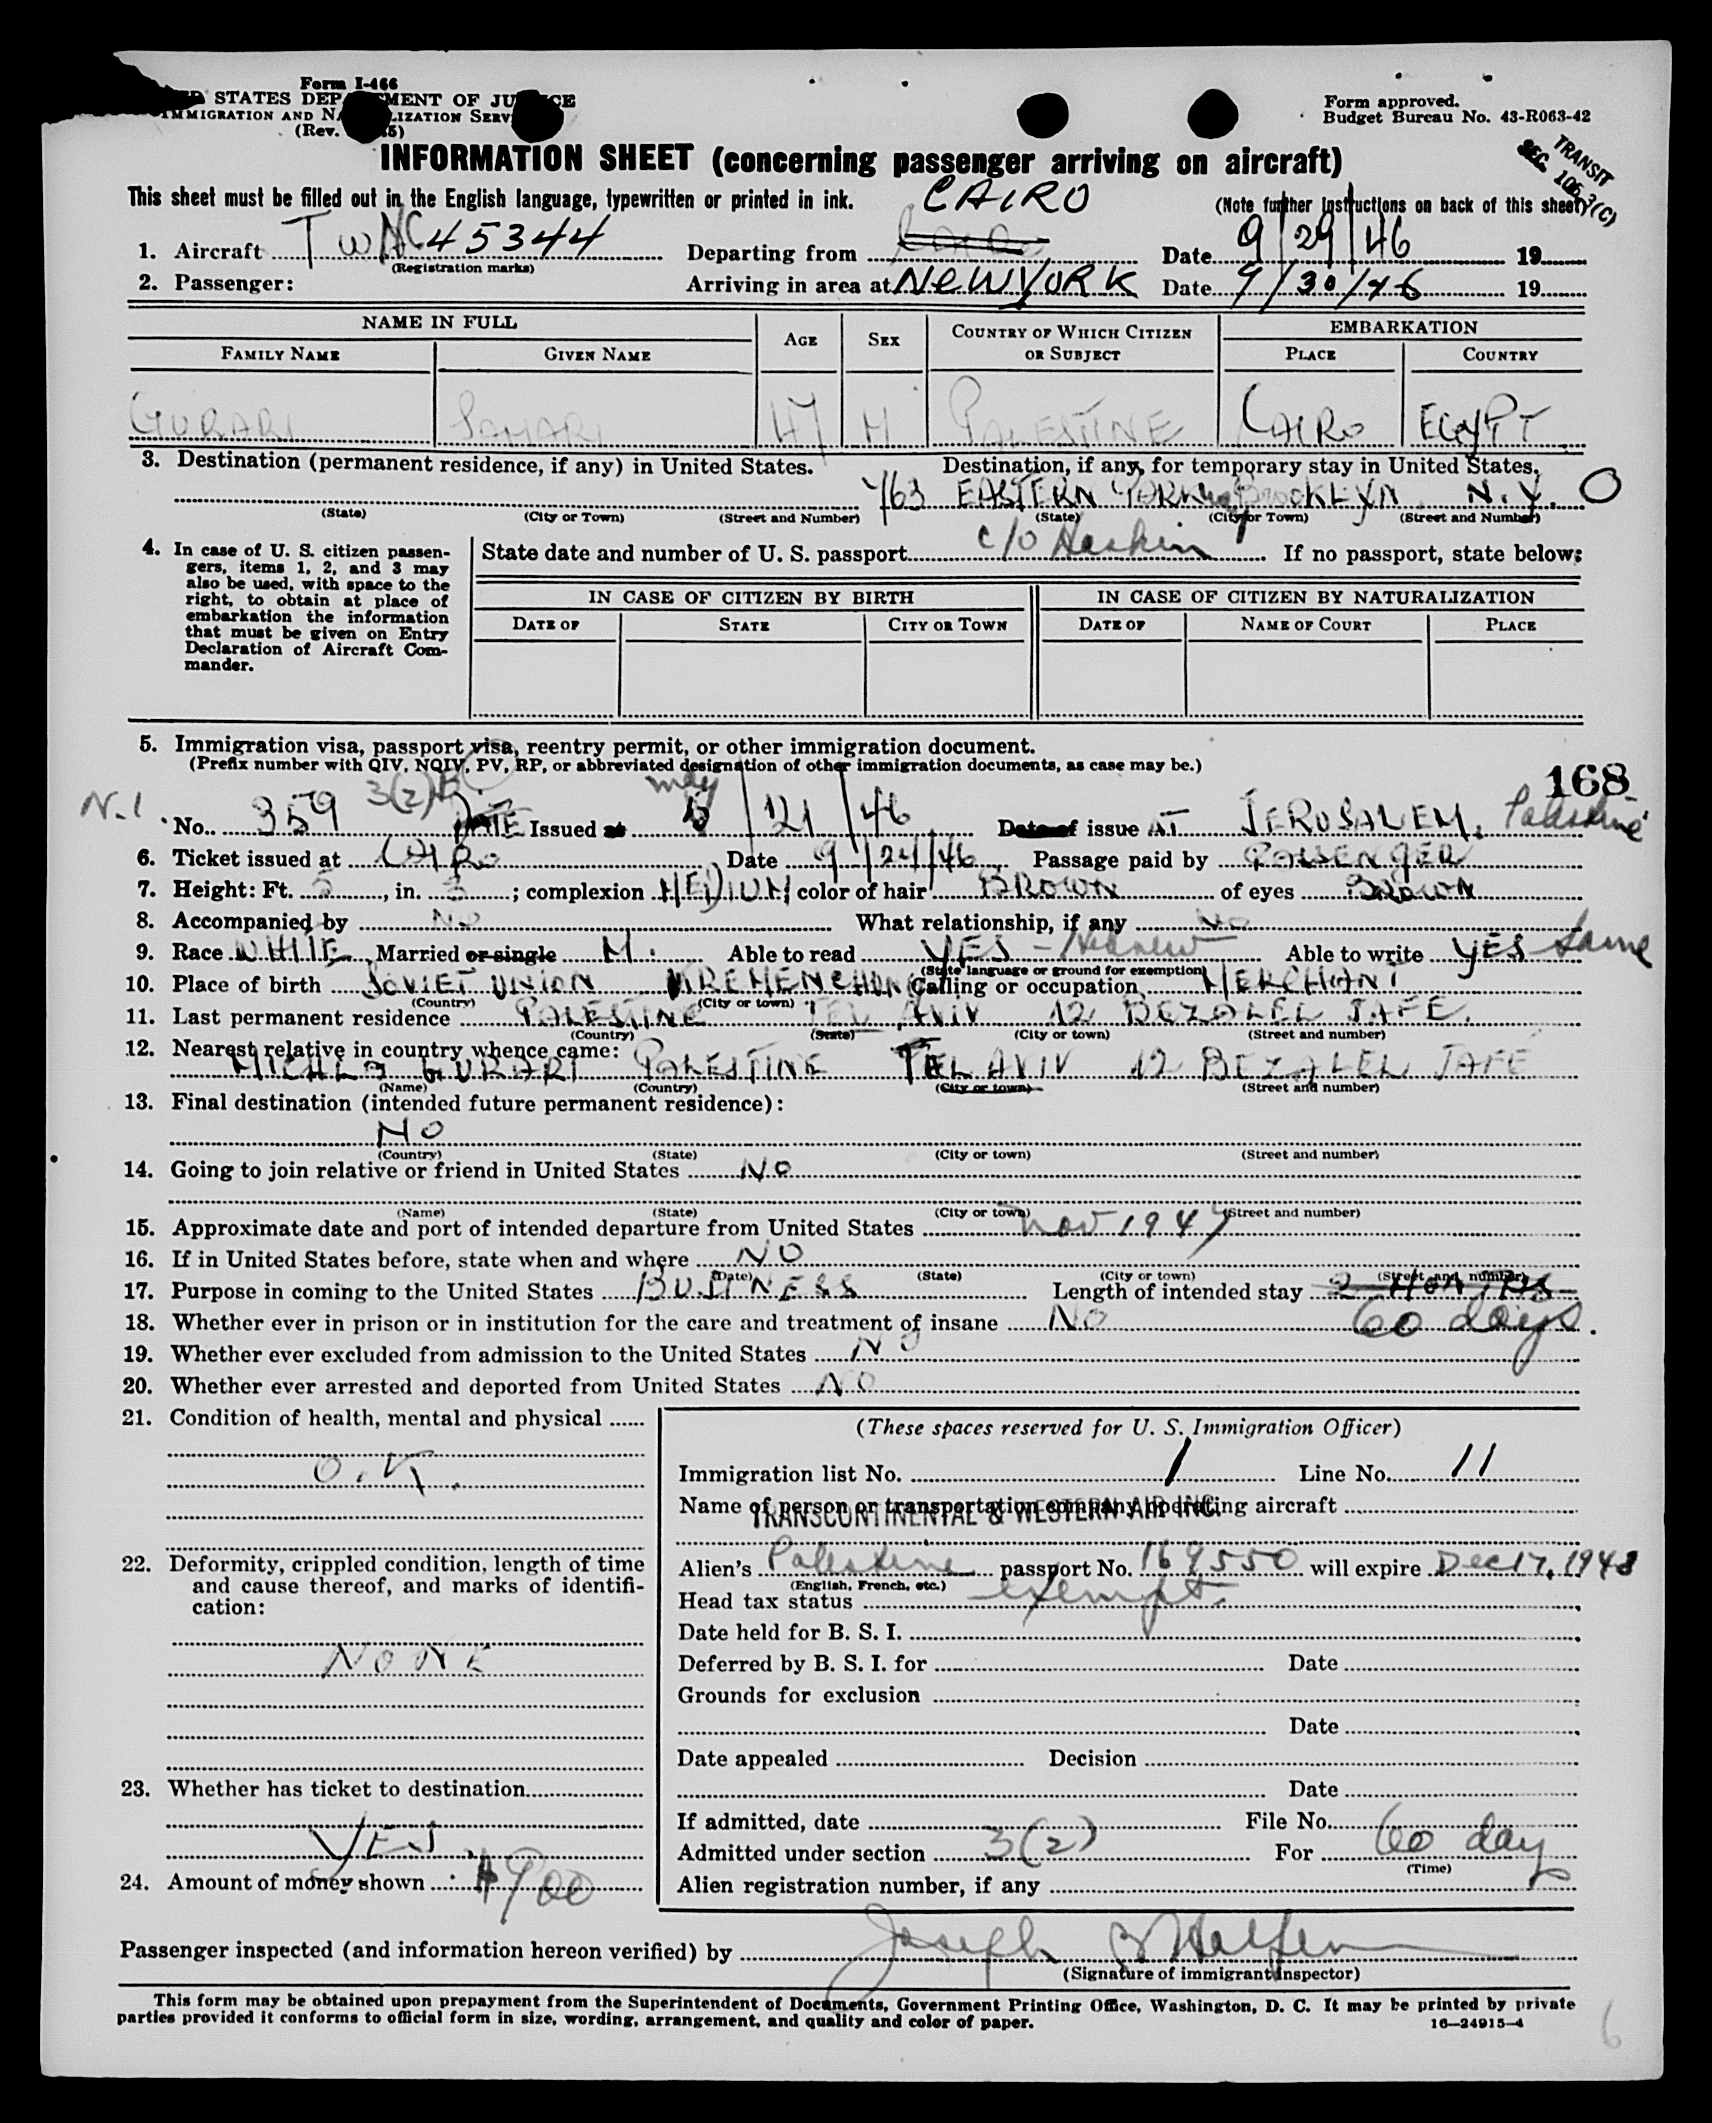 Form I-466
STATES DEPARTMENT OF JUSTICE
IMMIGRATION AND NATURALIZATION SERV
(Rev. 5)
Form approved.
Budget Bureau No. 43-R063-42
TRANSIT
SEC. 106.3(C)
INFORMATION SHEET (concerning passenger arriving on aircraft)
This sheet must be filled out in the English language, typewritten or printed in ink.
CAIRO
(Note further instructions on back of this sheet)
1. Aircraft TWA NC 45344 Departing from Date 9/29/46 19
(Registration marks)
2. Passenger: Arriving in area at NEW YORK Date 9/30/46 19
NAME IN FULL AGE SEX COUNTRY OF WHICH CITIZEN OR SUBJECT EMBARKATION
FAMILY NAME GIVEN NAME PLACE COUNTRY
GURARI 47 M PALESTINE CAIRO EGYPT
3. Destination (permanent residence, if any) in United States. Destination, if any, for temporary stay in United States.
763 EASTERN PARKway BROOKLYN N.Y. O
(State) (City or Town) (Street and Number) (State) (City or Town) (Street and Number)
c/o
4. In case of U. S. citizen passen-
gers, items 1, 2, and 3 may
also be used, with space to the
right, to obtain at place of
embarkation the information
that must be given on Entry
Declaration of Aircraft Com-
mander.
State date and number of U. S. passport If no passport, state below:
IN CASE OF CITIZEN BY BIRTH IN CASE OF CITIZEN BY NATURALIZATION
DATE OF STATE CITY OR TOWN DATE OF NAME OF COURT PLACE
5. Immigration visa, passport visa, reentry permit, or other immigration document.
(Prefix number with QIV, NQIV, PV, RP, or abbreviated designation of other immigration documents, as case may be.)
168
N.I 3(2) May
No. 359 DATE Issued at 5/21/46 Date of issue AT JERUSALEM, Palestine
6. Ticket issued at CAIRO Date 9/24/46 Passage paid by PASSENGER
7. Height: Ft. 5, in. 3; complexion MEDIUM color of hair BROWN of eyes BROWN
8. Accompanied by NO What relationship, if any NO
9. Race WHITE Married or single M. Able to read YES - Hebrew Able to write YES Same
(State language or ground for exemption)
10. Place of birth SOVIET UNION KREMENCHUNG Calling or occupation MERCHANT
(Country) (City or town)
11. Last permanent residence PALESTINE TEL AVIV 12 BEZALEL JAFE.
(Country) (State) (City or town) (Street and number)
12. Nearest relative in country whence came:
GURARI PALESTINE TEL AVIV 12 BEZALEL JAFE
(Name) (Country) (City or town) (Street and number)
13. Final destination (intended future permanent residence):
NO
(Country) (State) (City or town) (Street and number)
14. Going to join relative or friend in United States NO
(Name) (State) (City or town) (Street and number)
15. Approximate date and port of intended departure from United States Nov 1947
16. If in United States before, state when and where NO
(Date) (State) (City or town) (Street and number)
17. Purpose in coming to the United States BUSINESS Length of intended stay 2 MONTHS
18. Whether ever in prison or in institution for the care and treatment of insane NO 60 days.
19. Whether ever excluded from admission to the United States NO
20. Whether ever arrested and deported from United States NO
21. Condition of health, mental and physical
O.K.
22. Deformity, crippled condition, length of time
and cause thereof, and marks of identifi-
cation:
NONE
23. Whether has ticket to destination
YES
24. Amount of money shown $900
(These spaces reserved for U. S. Immigration Officer)
Immigration list No. 1 Line No. 11
Name of person or transportation company operating aircraft
TRANSCONTINENTAL & WESTERN AIR INC.
Alien's Palestine passport No. 169550 will expire Dec 17, 1948
(English, French, etc.)
Head tax status exempt.
Date held for B. S. I.
Deferred by B. S. I. for Date
Grounds for exclusion
Date
Date appealed Decision
Date
If admitted, date File No.
Admitted under section 3(2) For 60 days
(Time)
Alien registration number, if any
Passenger inspected (and information hereon verified) by Joseph
(Signature of immigrant inspector)
This form may be obtained upon prepayment from the Superintendent of Documents, Government Printing Office, Washington, D. C. It may be printed by private
parties provided it conforms to official form in size, wording, arrangement, and quality and color of paper.
16—24915-4
6